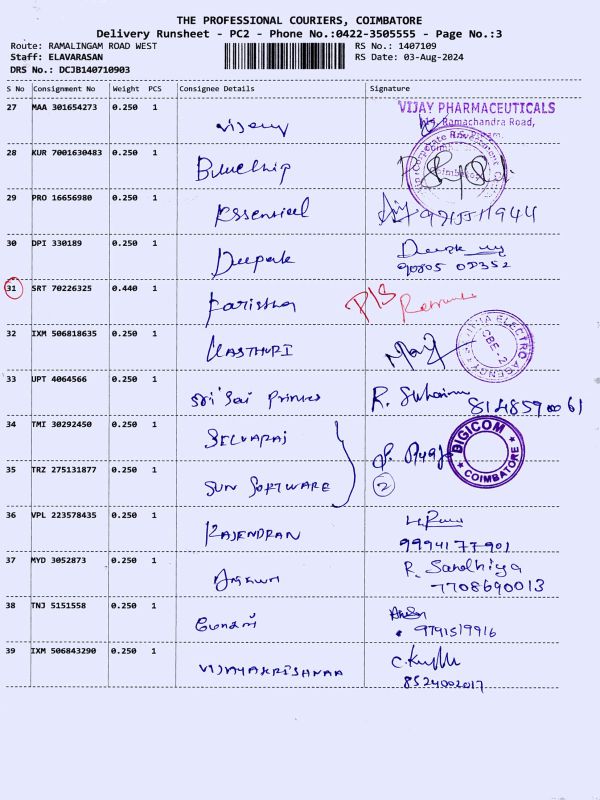 THE PROFESSIONAL COURIERS, COIMBATORE
Delivery Runsheet - PC2 - Phone No.:0422-3505555 - Page No.:3
Route: RAMALINGAM ROAD WEST
RS No.: 1407109
Staff: ELAVARASAN
RS Date: 03-Aug-2024
DRS No.: DCJB140710903
S No Consignment No Weight PCS Consignee Details Signature
27 MAA 301654273 0.250 1 Vijay
VIJAY PHARMACEUTICALS
Ramachandra Road,
R.S. Puram,
28 KUR 7001630483 0.250 1 Bluechip
29 PRO 16656980 0.250 1 Essential
30 DPI 330189 0.250 1 Deepak
Deepak
31 SRT 70226325 0.440 1
32 IXM 506818635 0.250 1 KASTHURI
ELECTRO AGENCY
CBE-2
33 UPT 4064566 0.250 1 Sri Sai Printers
R.
8148590061
34 TMI 30292450 0.250 1 SELVARAJ
DIGICOM
COIMBATORE
35 TRZ 275131877 0.250 1 SUN SOFTWARE
2
36 VPL 223578435 0.250 1 RAJENDRAN
9994177901
37 MYD 3052873 0.250 1
R. Sandhiya
7708690013
38 TNJ 5151558 0.250 1
9791519916
39 IXM 506843290 0.250 1 VIJAYAKRISHNAA
8524002017